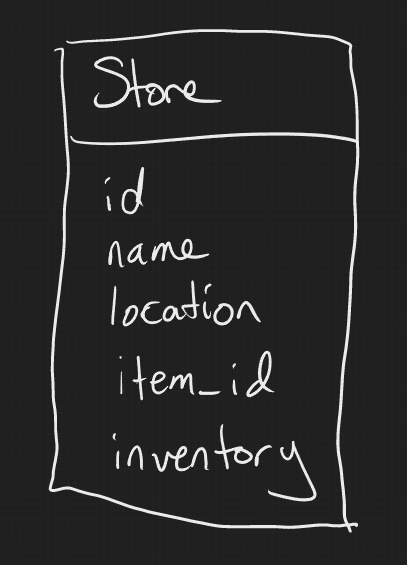 Store
id
name
location
item_id
inventory